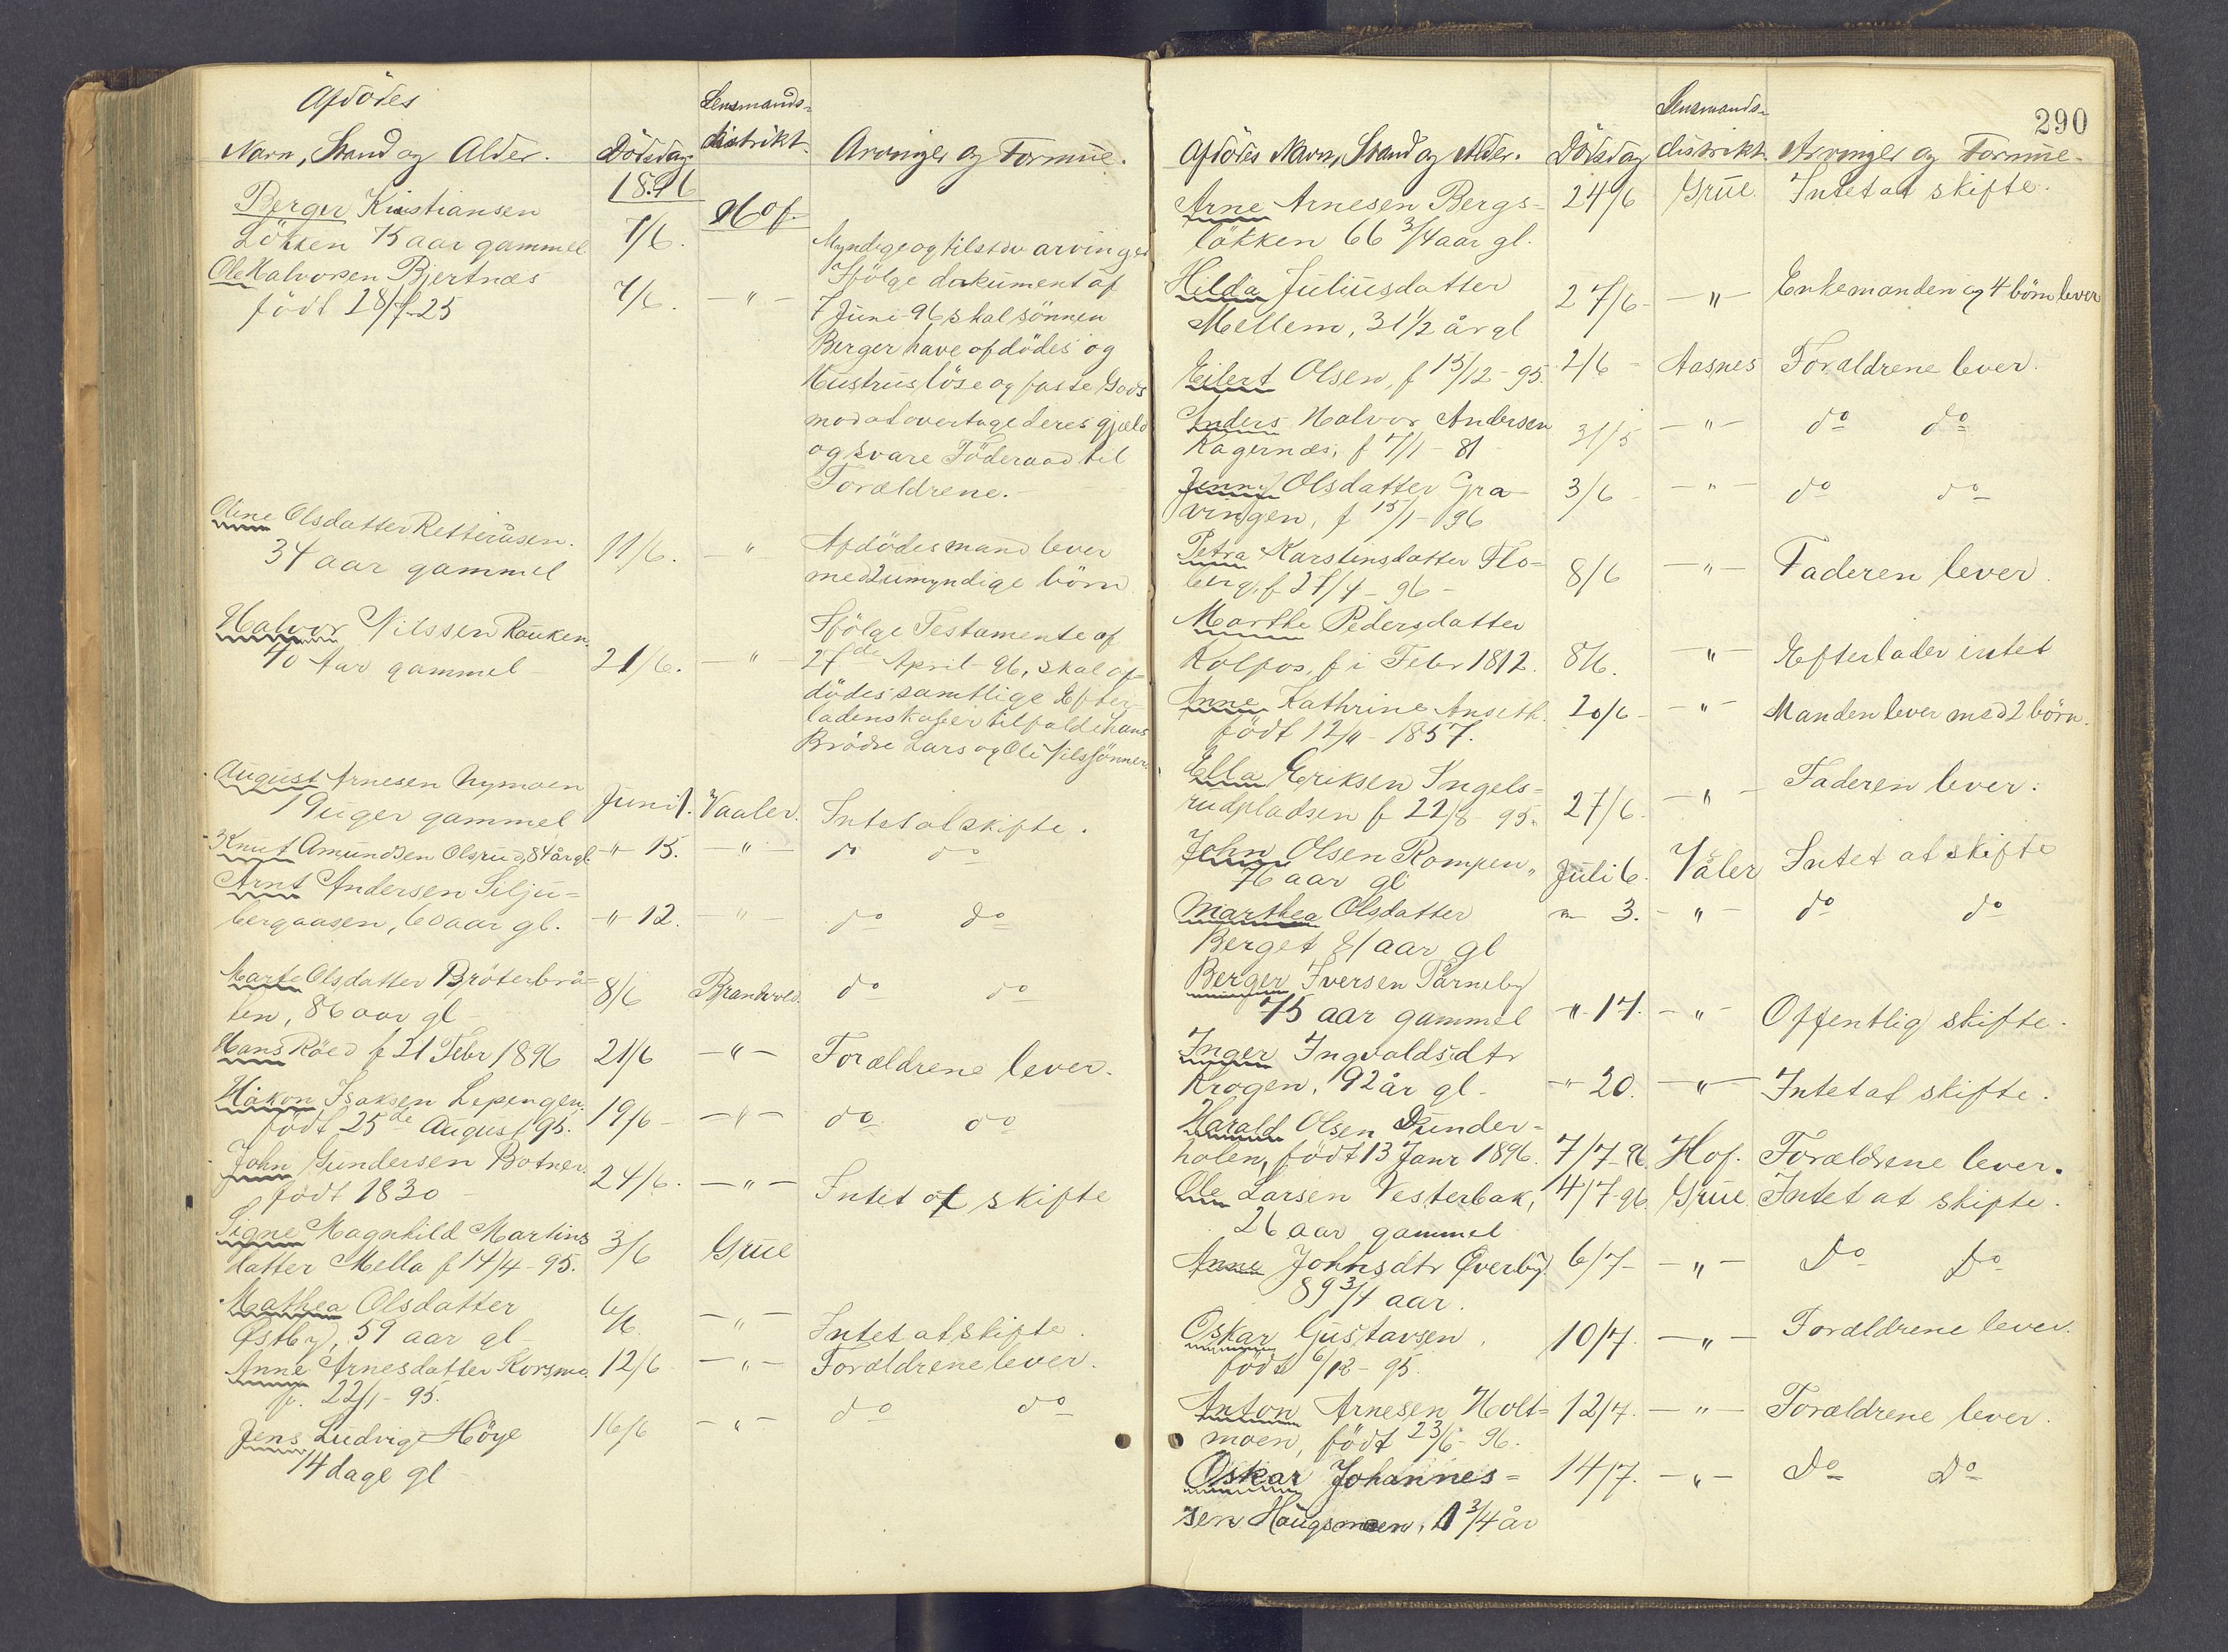 Afdödes
Navn, Stand og Alder. Dödsdag Lensmands-
distrikt. Arvinger og Formue.
1896
Berger Kristiansen
Lökken 75 aar gammel 7/6. Hof. Myndige og tilstdv arvinger
Ole Halvorsen Bjertnæs
födt 28/7-25 7/6. -"- Ifölge dokument af
7 Juni-96 skal sönnen
Berger have afdödes og
Hustrus löse og faste Gods
mod at overtage deres gjæld
og svare Föderaad til
Forældrene.
Oline Olsdatter Retteråsen.
34 aar gammel 11/6. -"- Afdödes mand lever
med 2 umyndige börn
Halvor Nilssen Rauken.
70 Aar gammel 21/6. -"- Ifölge Testamente af
27de April-96, skal af=
dödes samtlige Efter-
ladenskaber tilfalde hans
Brödre Lars og Ole Nilssönner.
August Arnesen Nymoen
19 uger gammel Juni 1. Vaaler. Intet at skifte.
Knut Amundsen Olsrud, 84 år gl. -"- 15. -"- do do
Arnt Andersen Silju=
bergaasen, 60 aar gl. -"- 12. -"- do do
Marte Olsdatter Bröterbrå=
ten, 86 aar gl - 8/6 Brandvold. do do
Hans Röed f 21 Febr 1896 21/6 -"- Forældrene lever.
Håkon Isaksen Lepengen.
födt 25de August 95. 19/6 -"- do do
John Gundersen Botner.
födt 1830 24/6. -"- Intet at skifte
Signe Magnhild Martins
datter Mella f 14/4-95. 3/6 Grue
Mathea Olsdatter
Østby, 59 aar gl 6/6. -"- Intet at skifte.
Anne Arnesdatter Korsmo. 12/6 -"- Forældrene lever.
f. 22/1-95.
Jens Ludvig Höye 16/6 -"- do do
14 dage gl
290
Afdödes Navn, Stand og Alder. Dödsdag Lensmands-
distrikt. Arvinger og Formue.
Arne Arnesen Bergs= 24/6 Grue. Intet at skifte.
løkken 66 3/4 aar gl.
Hilda Juliusdatter 27/6- -"- Enkemanden og 4 börn lever
Mellem, 31 1/2 år gl
Eilert Olsen, f 15/12-95. 2/6 - Aasnes Forældrene lever.
Anders Halvor Andersen 31/5 -"- do do
Kagernæs, f 7/1-81
Jenny Olsdatter Gra- 3/6 - -"- do do
vingen, f 15/1-96
Petra Karstensdatter Flo= 8/6 -"- Faderen lever.
berg, f 27/4-96-
Marthe Pedersdatter
Kolpos, f i Febr 1812. 8/6. -"- Efterlader intet
Anne Kathrine Anseth. 20/6- -"- Manden lever med 2 börn.
födt 12/11-1857.
Ella Eriksen Ingels= Faderen lever.
rudpladsen f 22/8-95. 27/6. -"-
John Olsen Rompen, Juli 6. Våler Intet at skifte
76 aar gl
Marthea Olsdatter " 3. -"- do do
Berget 81 aar gl
Berger Iversen Tårneby
75 aar gammel -"- 17. -"- Offentlig skifte.
Inger Ingvaldsdtr
Krogen, 92 år gl. -"- 20. -"- Intet at skifte.
Harald Olsen Dunder-
holen, födt 13 Janr 1896. 7/7-96. Hof. Forældrene lever.
Ole Larsen Vesterbak, 4/7-96. Grue Intet at skifte.
26 aar gammel
Anne Johnsdtr Øverby. 6/7- -"- Do Do
89 3/4 aar.
Oskar Gustavsen 10/7. -"- Forældrene lever.
födt 6/12-95.
Anton Arnesen Holt= 12/7. -"- Forældrene lever.
moen, födt 23/6-96.
Oskar Johannes= 14/7. -"- Do Do
sen Haugsmoen, 1 3/4 år